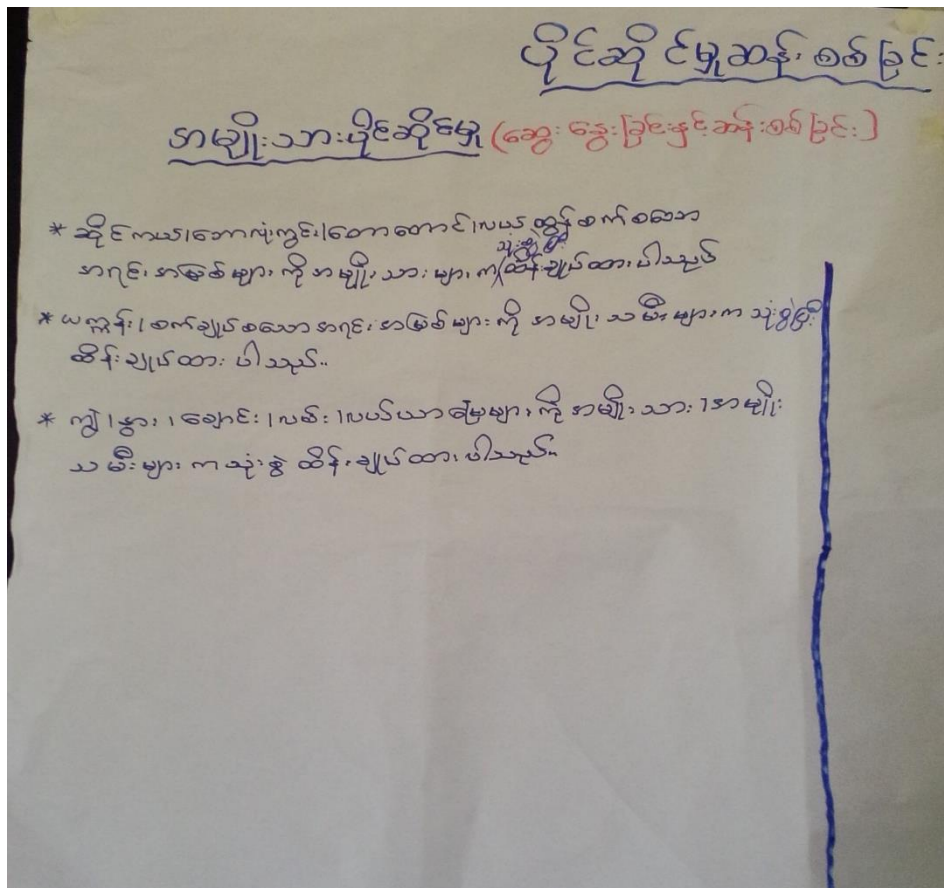 ပိုင်ဆိုင်မှုဆန်းစစ်ခြင်း
အမျိုးသားပိုင်ဆိုင်မှု (ဆွေးနွေးခြင်းနှင့်ဆန်းစစ်ခြင်း)
* ဆိုင်ကယ်၊ဘောလုံးကွင်း၊တောတောင်၊လယ်ထွန်စက်စသော
သုံးစွဲပြီး
အရင်းအမြစ်များကို အမျိုးသားများက ထိန်းချုပ်ထားပါသည်
* ယက္ကန်း၊စက်ချုပ်စသောအရင်းအမြစ်များကို အမျိုးသမီးများက သုံးစွဲပြီး
ထိန်းချုပ်ထားပါသည်။
* ကျွဲ၊နွား၊ချောင်း၊လမ်း၊လယ်ယာမြေများကို အမျိုးသား၊အမျိုး
သမီးများကသုံးစွဲ ထိန်းချုပ်ထားပါသည်။